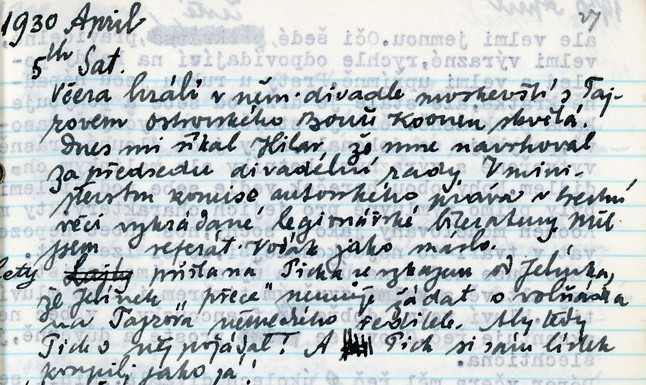 1930 April 27
5th Sat.
Včera hráli v něm. divadle moskevští s Taj-
rovem Ostrovského Bouři Koonen skvělá.
Dnes mi říkal Hilar, že mne navrhoval
za předsedu divadelní rady V mini-
sterstvu komise autorského práva v trestní
věci vykrádané legionářské literatury Měl
jsem referát. Vodák jako máslo.
lety přišla na Ticha se vzkazem od Jelínka,
že Jelínek "přece" nemůže žádat o volňáska
na Tajrova německého ředitele. Aby tedy
Tich o něj požádal! A Tich si zatím lístek
koupil jako já!